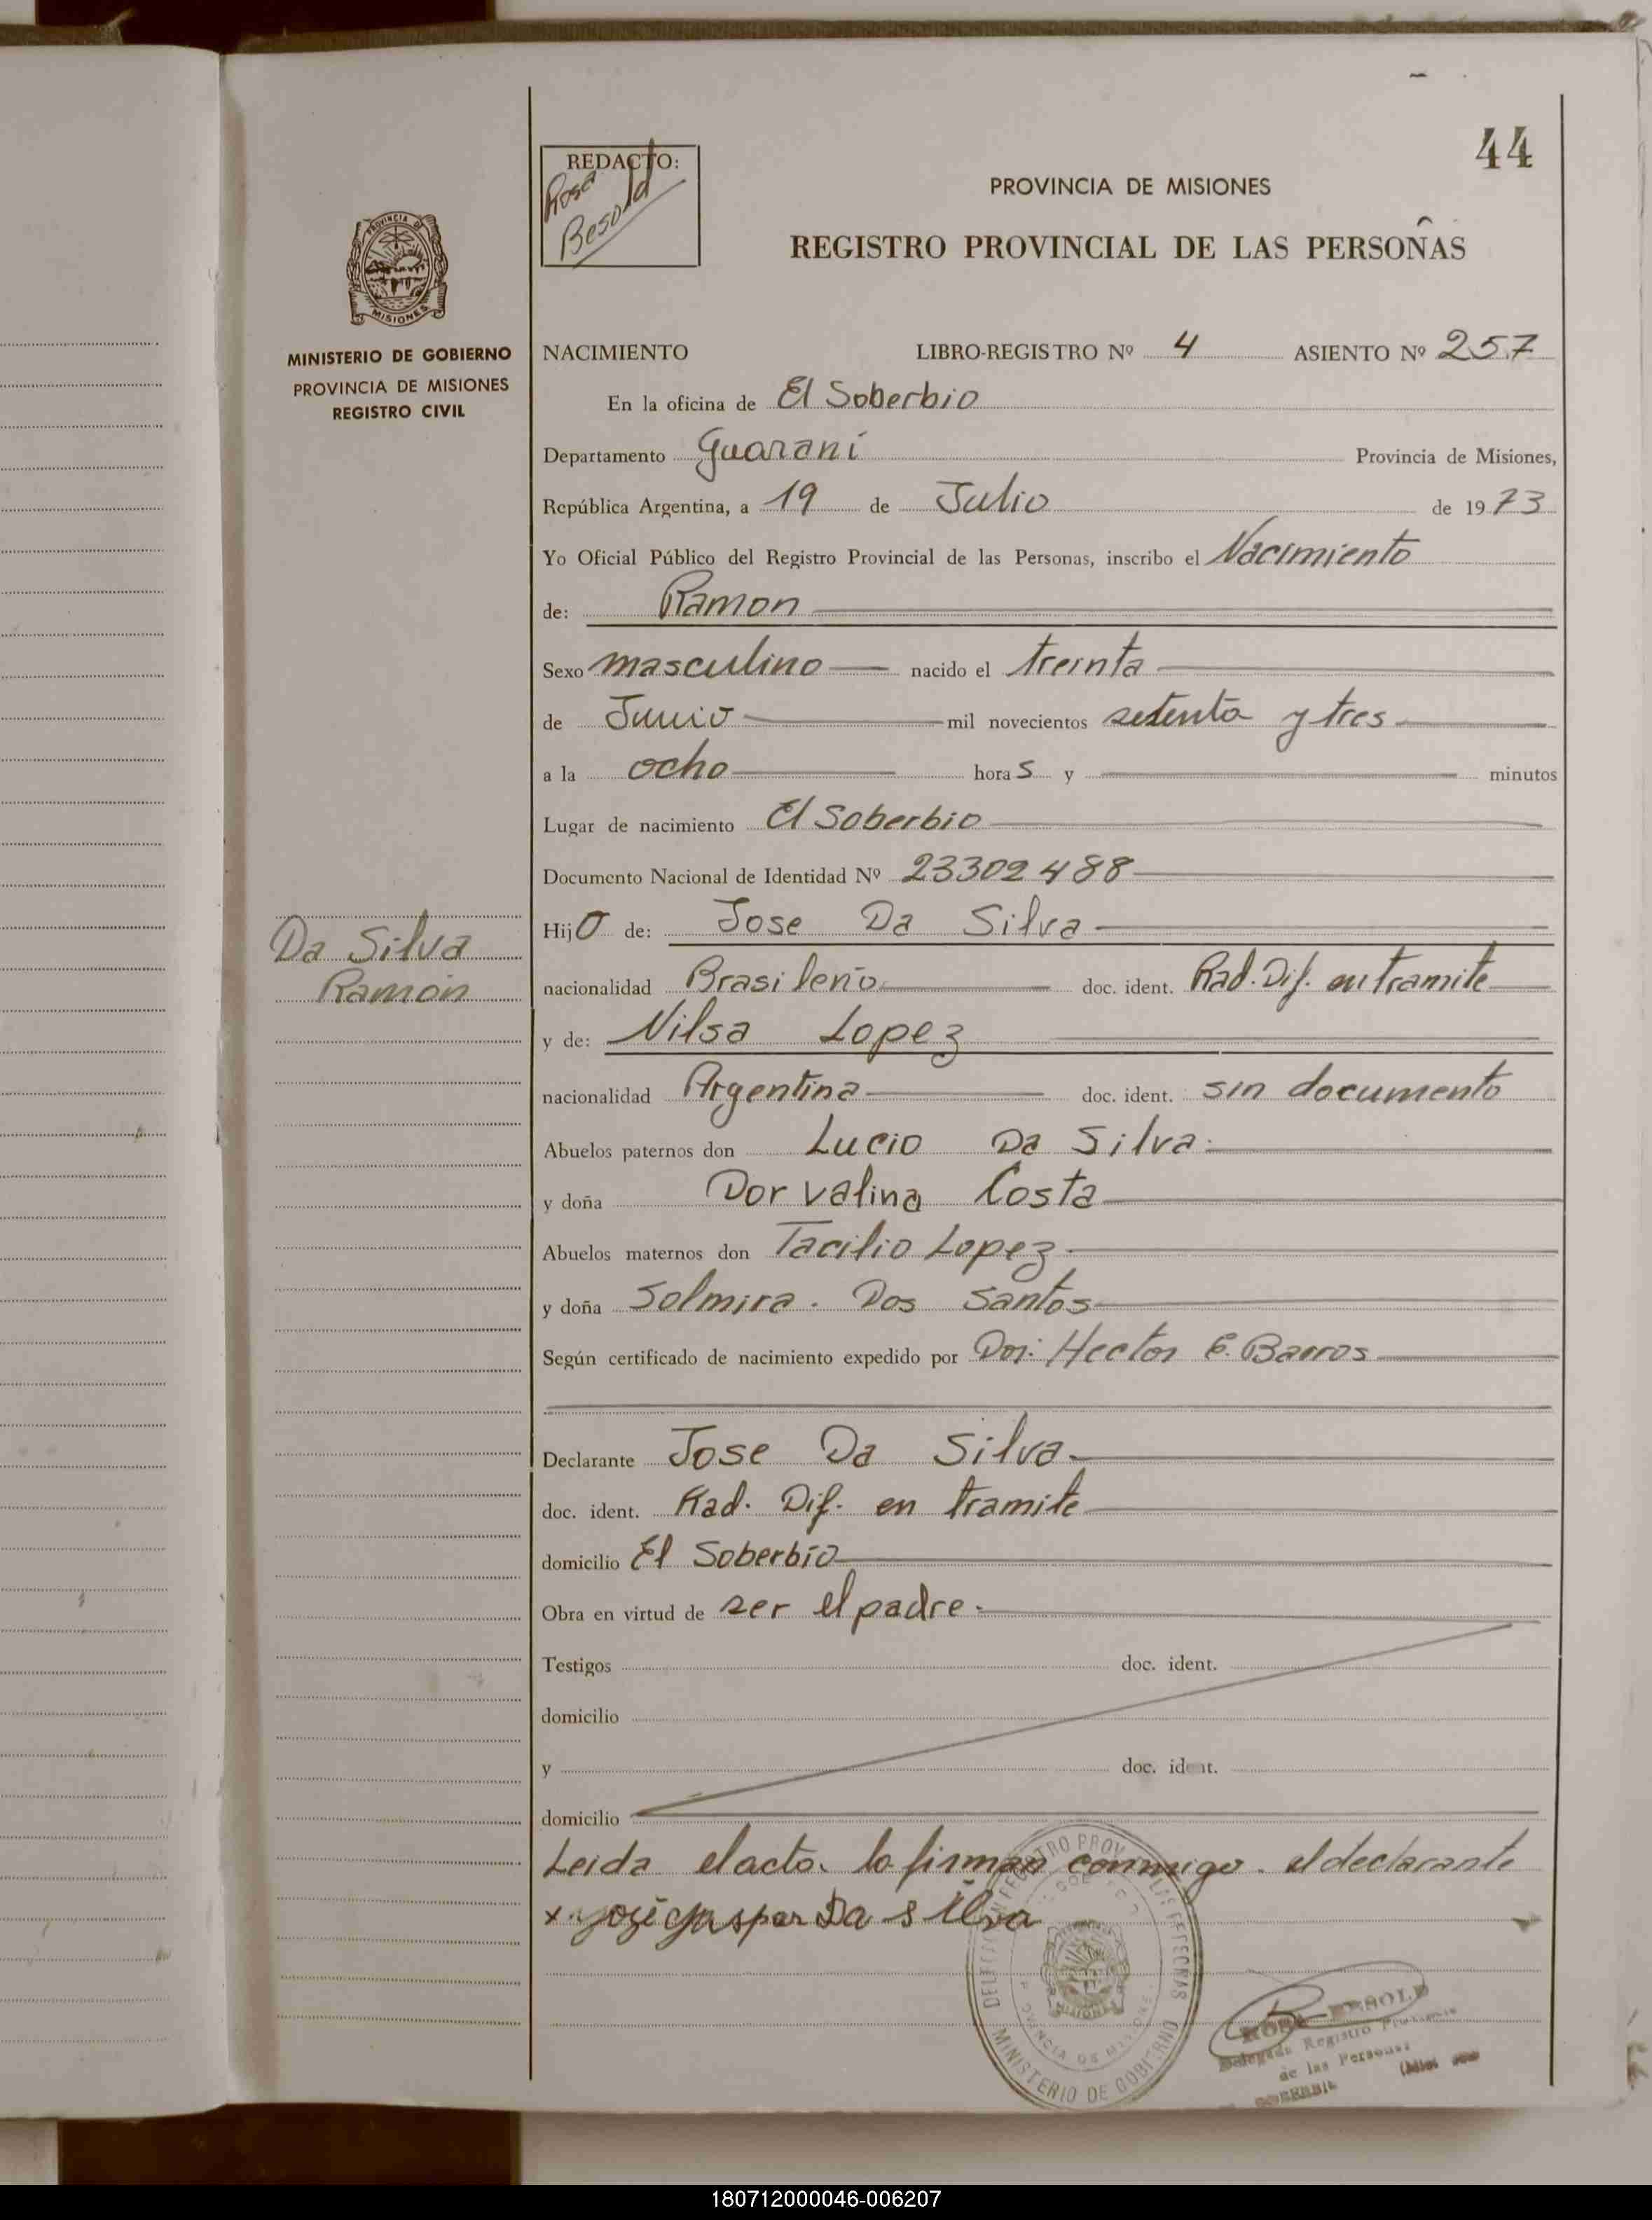 44
REDACTO:
Rosa
Besold
PROVINCIA DE MISIONES
REGISTRO PROVINCIAL DE LAS PERSOÑAS
PROVINCIA DE
MISIONES
MINISTERIO DE GOBIERNO
PROVINCIA DE MISIONES
REGISTRO CIVIL
NACIMIENTO LIBRO-REGISTRO Nº 4 ASIENTO Nº 257
En la oficina de El Soberbio
Departamento Guaraní Provincia de Misiones,
República Argentina, a 19 de Julio de 1973
Yo Oficial Público del Registro Provincial de las Personas, inscribo el Nacimiento
de: Ramon
Sexo masculino nacido el treinta
de Junio mil novecientos setenta y tres
a la ocho horas y minutos
Lugar de nacimiento El Soberbio
Documento Nacional de Identidad Nº 23302488
Hijo de: Jose Da Silva
Da Silva
Ramón
nacionalidad Brasileño doc. ident. Rad. Dif. en tramite
y de: Nilsa Lopez
nacionalidad Argentina doc. ident. sin documento
Abuelos paternos don Lucio Da Silva
y doña Dorvalina Costa
Abuelos maternos don Tacilio Lopez
y doña Solmira. Dos Santos
Según certificado de nacimiento expedido por Dor: Hector E. Barros
Declarante Jose Da Silva
doc. ident. Rad. Dif. en tramite
domicilio El Soberbio
Obra en virtud de ser el padre.
Testigos doc. ident.
domicilio
y doc. ident.
domicilio
Leida el acto. lo firman conmigo. el declarante
x José Gaspar Da Silva
MINISTERIO DE GOBIERNO
ROSA BESOLD
Delegada Registro Provincial
de las Personas
180712000046-006207